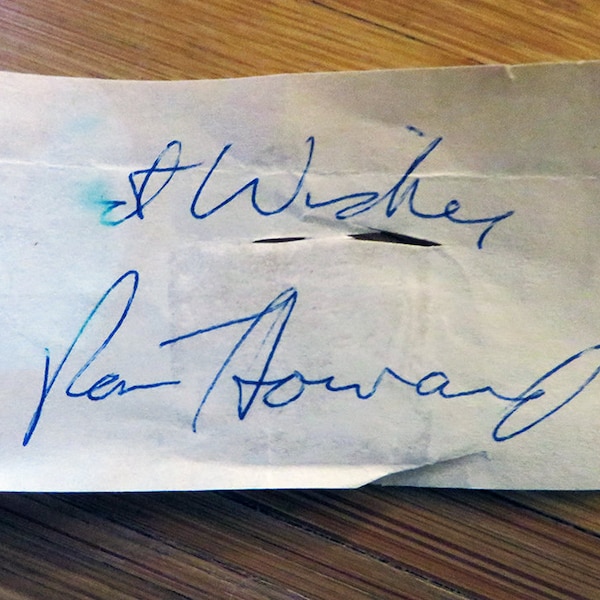 st Wishes
Ron Howard